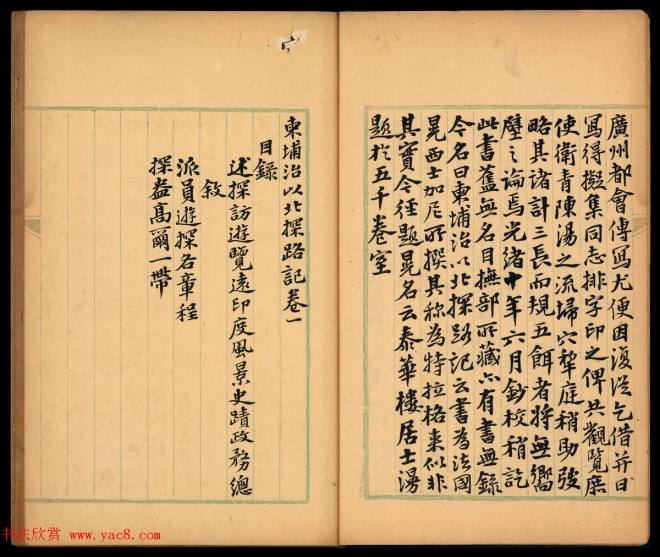 廣州都會傳寫尤便因復從乞借并日
寫得擬集同志排字印之俾共觀覽庶
使衛青陳湯之流埽穴犂庭稍助發
略其諸計三長而規五餌者將無嚮
壁之論焉光緒十年六月鈔校稍訖
此書舊無名目撫部所藏亦有書無錄
今名曰柬埔治以北探路記云書為法國
晃西士加尼所撰其稱為特拉格來似非
其實今徑題晃名云泰華樓居士漫
題於五千卷室
柬埔治以北探路記卷一
目錄
述探訪遊覽遠印度風景史蹟政務總
敘
派員遊探名章程
探盎高爾一帶
书法欣赏 www.yac8.com